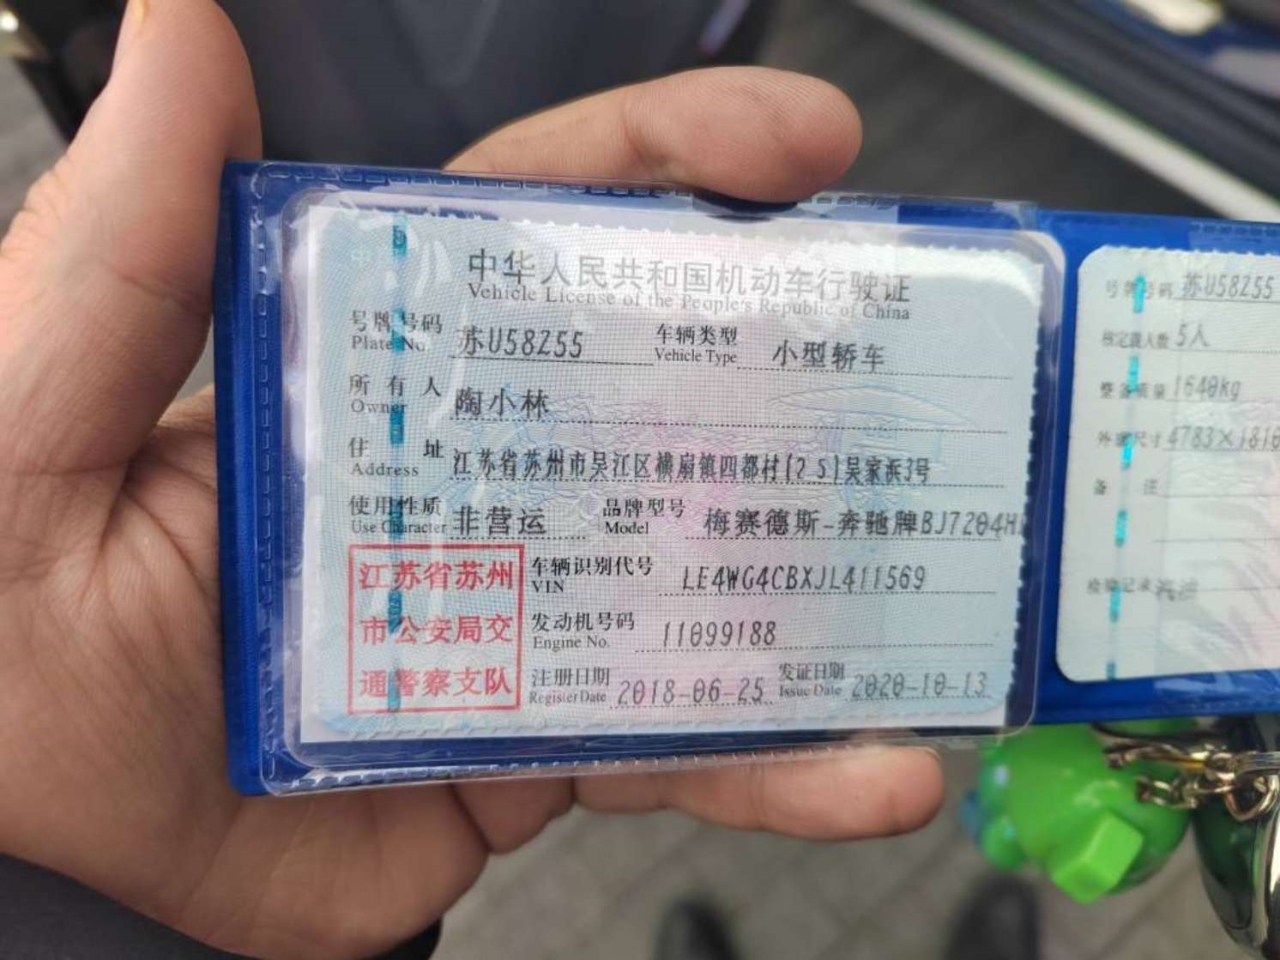 中华人民共和国机动车行驶证
Vehicle License of the People's Republic of China
号牌号码 苏U58Z55 车辆类型 小型轿车
Plate No. Vehicle Type
所有人 陶小林
Owner
住址 江苏省苏州市吴江区横扇镇四都村(25)吴家浜3号
Address
使用性质 非营运 品牌型号 梅赛德斯-奔驰牌BJ7204H
Use Character Model
江苏省苏州
市公安局交
通警察支队
车辆识别代号 LE4WG4CBXJL411569
VIN
发动机号码 11099188
Engine No.
注册日期 2018-06-25 发证日期 2020-10-13
Register Date Issue Date
号牌号码 苏U58Z55
核定载人数 5人
整备质量 1640kg
外廓尺寸 4783×1810
备注
检验记录 汽油